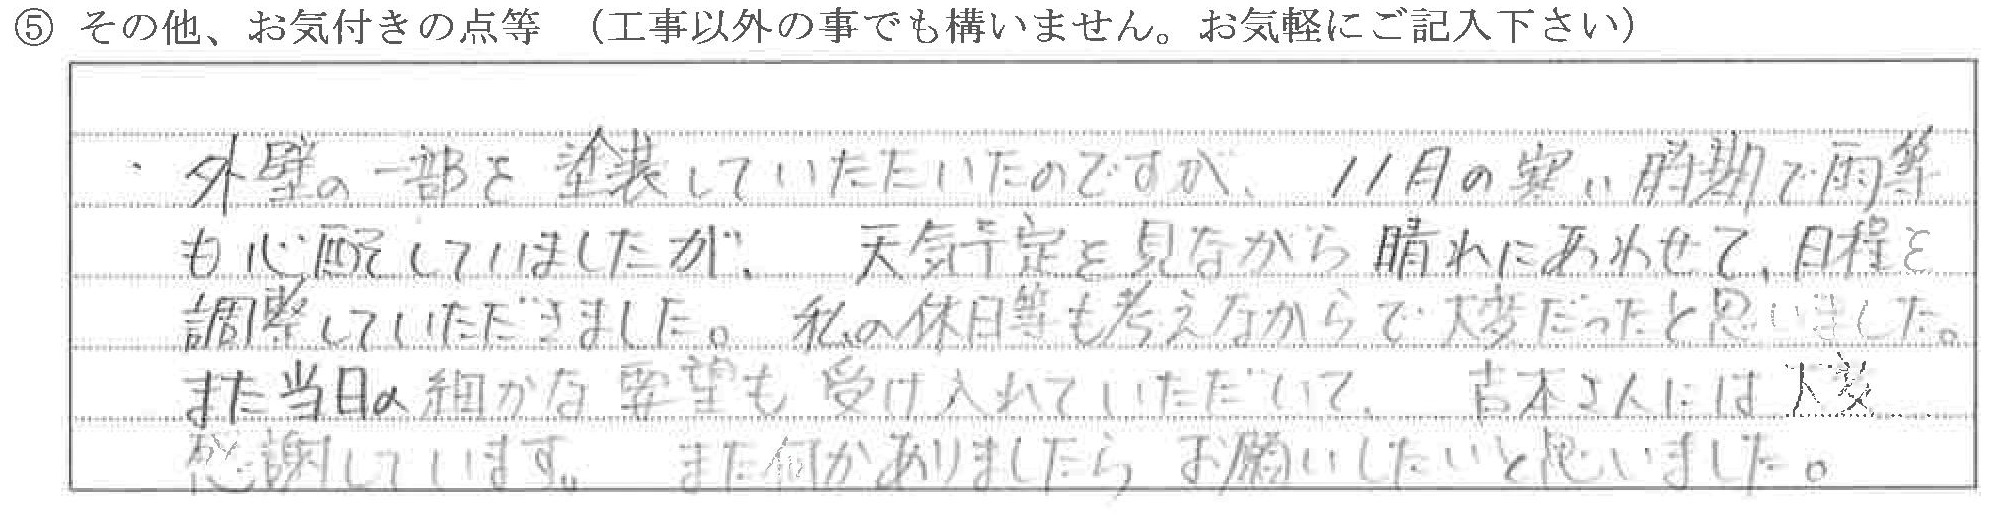 ⑤ その他、お気付きの点等 （工事以外の事でも構いません。お気軽にご記入下さい）
・外壁の一部を塗装していただいたのですが、11月の寒い時期で雨等
も心配していましたが、天気予定を見ながら晴れにあわせて、日程を
調整していただきました。私の休日等も考えながらで大変だったと思いました。
また当日の細かな要望も受け入れていただいて、吉本さんには大変
感謝しています。また何かありましたらお願いしたいと思いました。